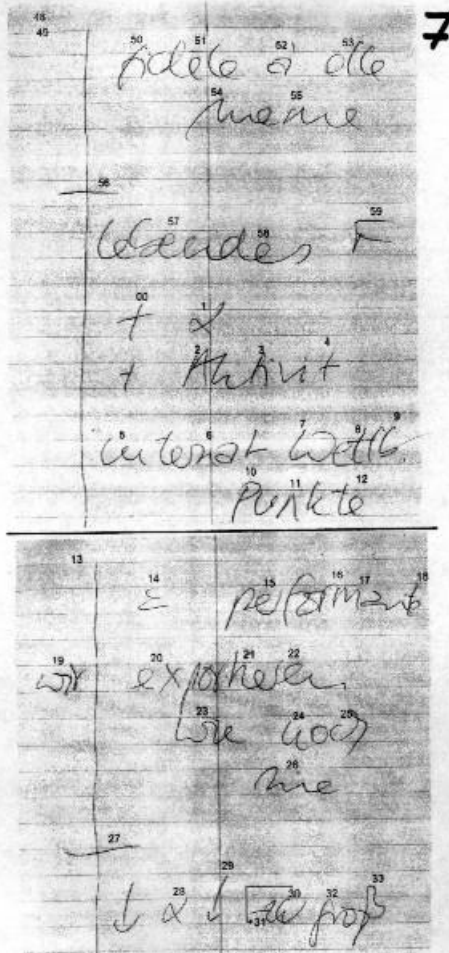 7
48
49
50 51 52 53
fidele à elle
54 55
meme
56
57 58 59
00 1
+ α
2 3 4
+ Aktivit
5 6 7 8 9
internat Wettb.
10 11 12
Punkte
13
14 15 16 17 18
ε performant
19 20 21 22
wir exportieren
23 24 25
wie noch
26
nie
27
28 29 30 31 32 33
↓ α ↓ groß